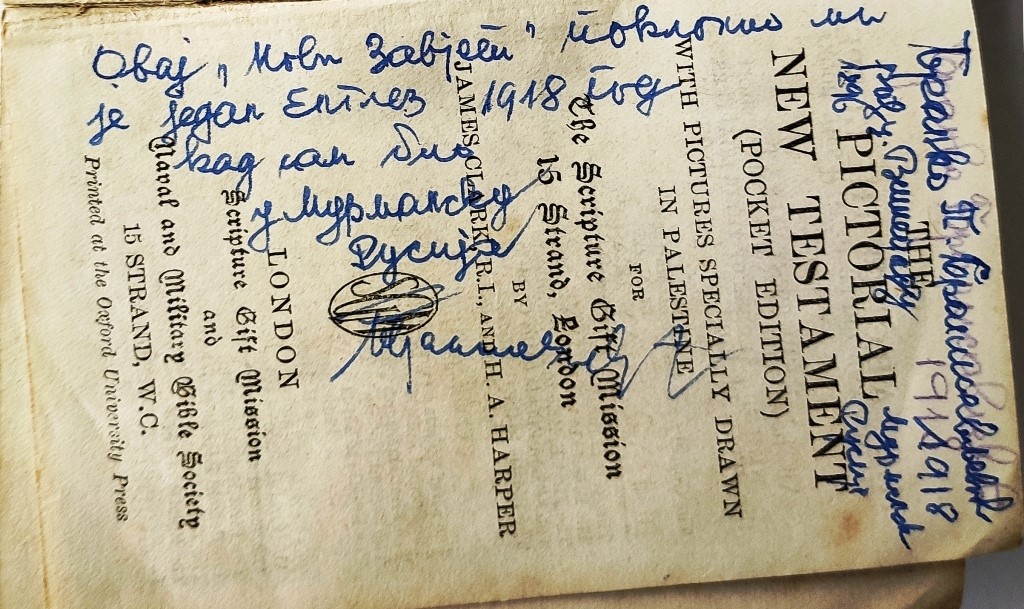 Овај „Нови Завјет" поклонио ми
је један Енглез 1918 год
кад сам био
у Мурманску
Русија
Бранко
1918
1918
THE
PICTORIAL
NEW TESTAMENT
(POCKET EDITION)
WITH PICTURES SPECIALLY DRAWN
IN PALESTINE
FOR
The Scripture Gift Mission
15 Strand, London
BY
JAMES CLARK, R.I., AND H. A. HARPER
LONDON
Scripture Gift Mission
and
Naval and Military Bible Society
15 STRAND, W.C.
Printed at the Oxford University Press